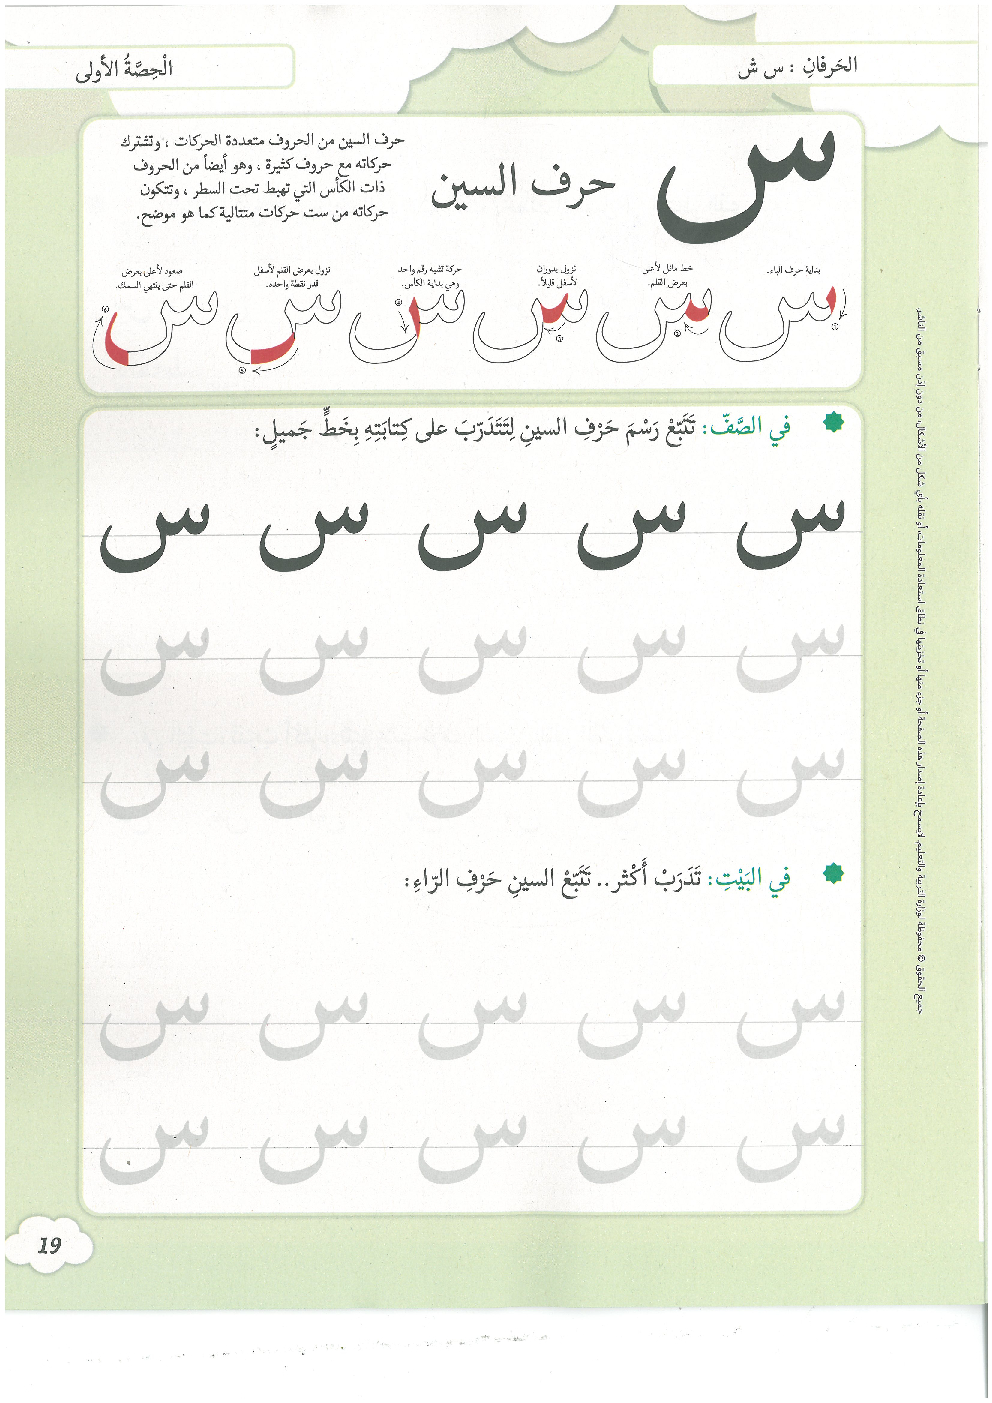 الحَرفانِ : س ش
الْحِصَّةُ الأولى
س
حرف السين
حرف السين من الحروف متعددة الحركات ، وتشترك
حركاته مع حروف كثيرة ، وهو أيضاً من الحروف
ذات الكأس التي تهبط تحت السطر ، وتتكون
حركاته من ست حركات متتالية كما هو موضح.
بداية حرف الباء.
خط مائل لأعلى
بعرض القلم.
نزول بدوران
لأسفل قليلاً.
حركة تشبه رقم واحد
وهي بداية الكأس.
نزول بعرض القلم لأسفل
قدر نقطة واحدة.
صعود لأعلى بعرض
القلم حتى ينتهي السمك.
س س س س س س
في الصَّفّ: تَتَبّعْ رَسْمَ حَرْفِ السينِ لِتَتَدَرّبَ على كِتابَتِهِ بِخَطٍّ جَميلٍ:
س س س س س
س س س س س
س س س س س
في البَيْتِ: تَدَرَبْ أَكْثر.. تَتَبّعْ السينِ حَرْفِ الرّاءِ:
س س س س س
س س س س س
جميع الحقوق © محفوظة لوزارة التربية والتعليم. لا يسمح بإعادة إصدار هذه الصفحة أو جزء منها أو تخزينها في نطاق استعادة المعلومات، أو نقله بأي شكل من الأشكال، من دون إذن مسبق من الناشر
19